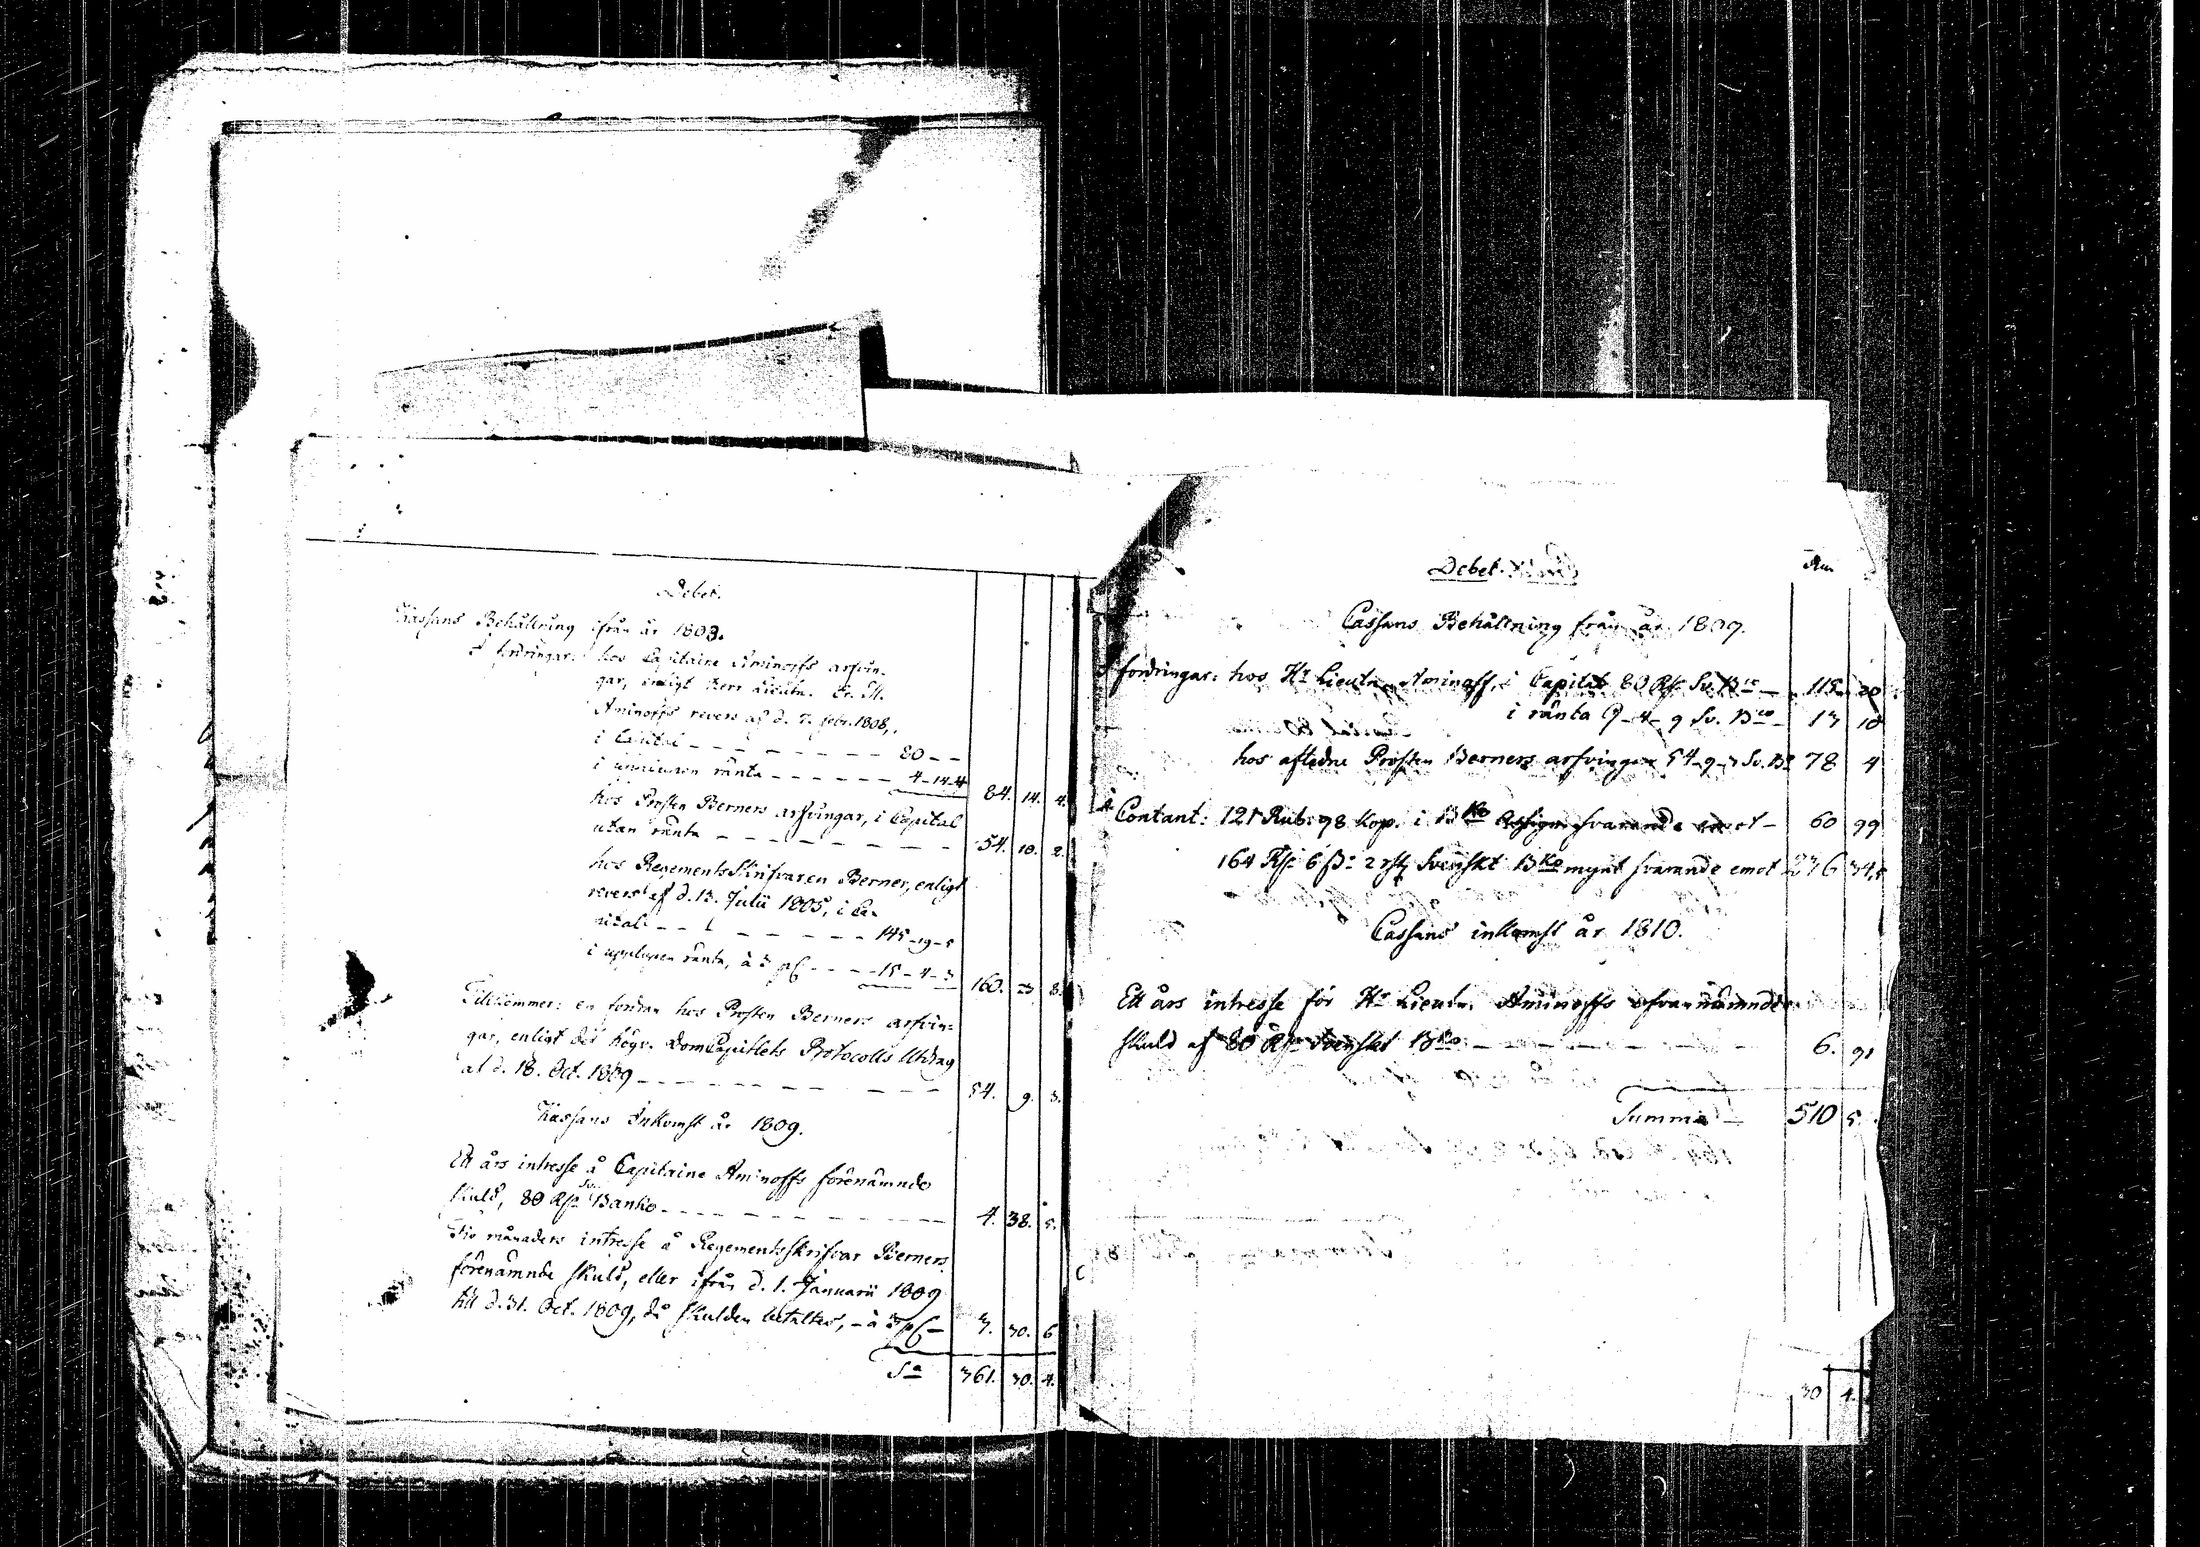 Debet.
Kassans Behållning ifrån år 1808.
I fordringar: hos Capitaine Aminoffs arfvin-
gar, enligt Herr Lieutn.
Aminoffs revers af d. 7. febr. 1808,
i Capital - - - - - - - 80 - -
i upplupen ränta - - - - - - 4-14-4 84. 14. 4.
hos Prosten Berners arfvingar, i Capital
utan ränta - - - - - - - - 54. 10. 2.
hos RegementsSkrifvaren Berner, enligt
revers af d. 13. Julii 1805, i Ca-
pital - - - - - - - 145-19-5
i upplupen ränta, à 3 pC - - - -15-4-3 160. 23 8.
Tillkommer: en fordran hos Prosten Berners arfvin-
gar, enligt det Högv. DomCapitlets Protocolls Utdrag
af d. 18. Oct. 1809 - - - - - - - - 54. 9. 3.
Kassans Inkomst år 1809.
Ett års intresse å Capitaine Aminoffs förenämnde
skuld, 80 Rdr Sv. Banko - - - - - - - - 4. 38. 5.
Tio månaders intresse å Regementsskrifvar Berners
förenämnde skuld, eller ifrån d. 1. Januarii 1809
till d. 31. Oct. 1809, då skulden betaltes, - à 3 pC - 3. 30. 6
Sa 361. 30. 4.
Debet.
Cassans Behållning från år 1809.
I fordringar: hos Hr Lieutn. Aminoff, i Capital 80 Rdr Sv. Bco - 115 20
i ränta 9-4-9 Sv. Bco - 13 10
hos aflednе Prosten Berners arfvingar 54-9-3 Sv. Bo 78 4
Contant: 121 Rub: 98 Kop. i Bko Assign. svarande emot - 60 99
164 Rdr 6 ß: 2 rst Svenskt Bko mynt svarande emot 236 34,5
Cassans inkomst år 1810.
Ett års intresse för Hr Lieutn. Aminoffs ofvannämnde
skuld af 80 Rdr Svenskt Bko - - - - - - - 6. 91
Summa - 510 5
30 4.